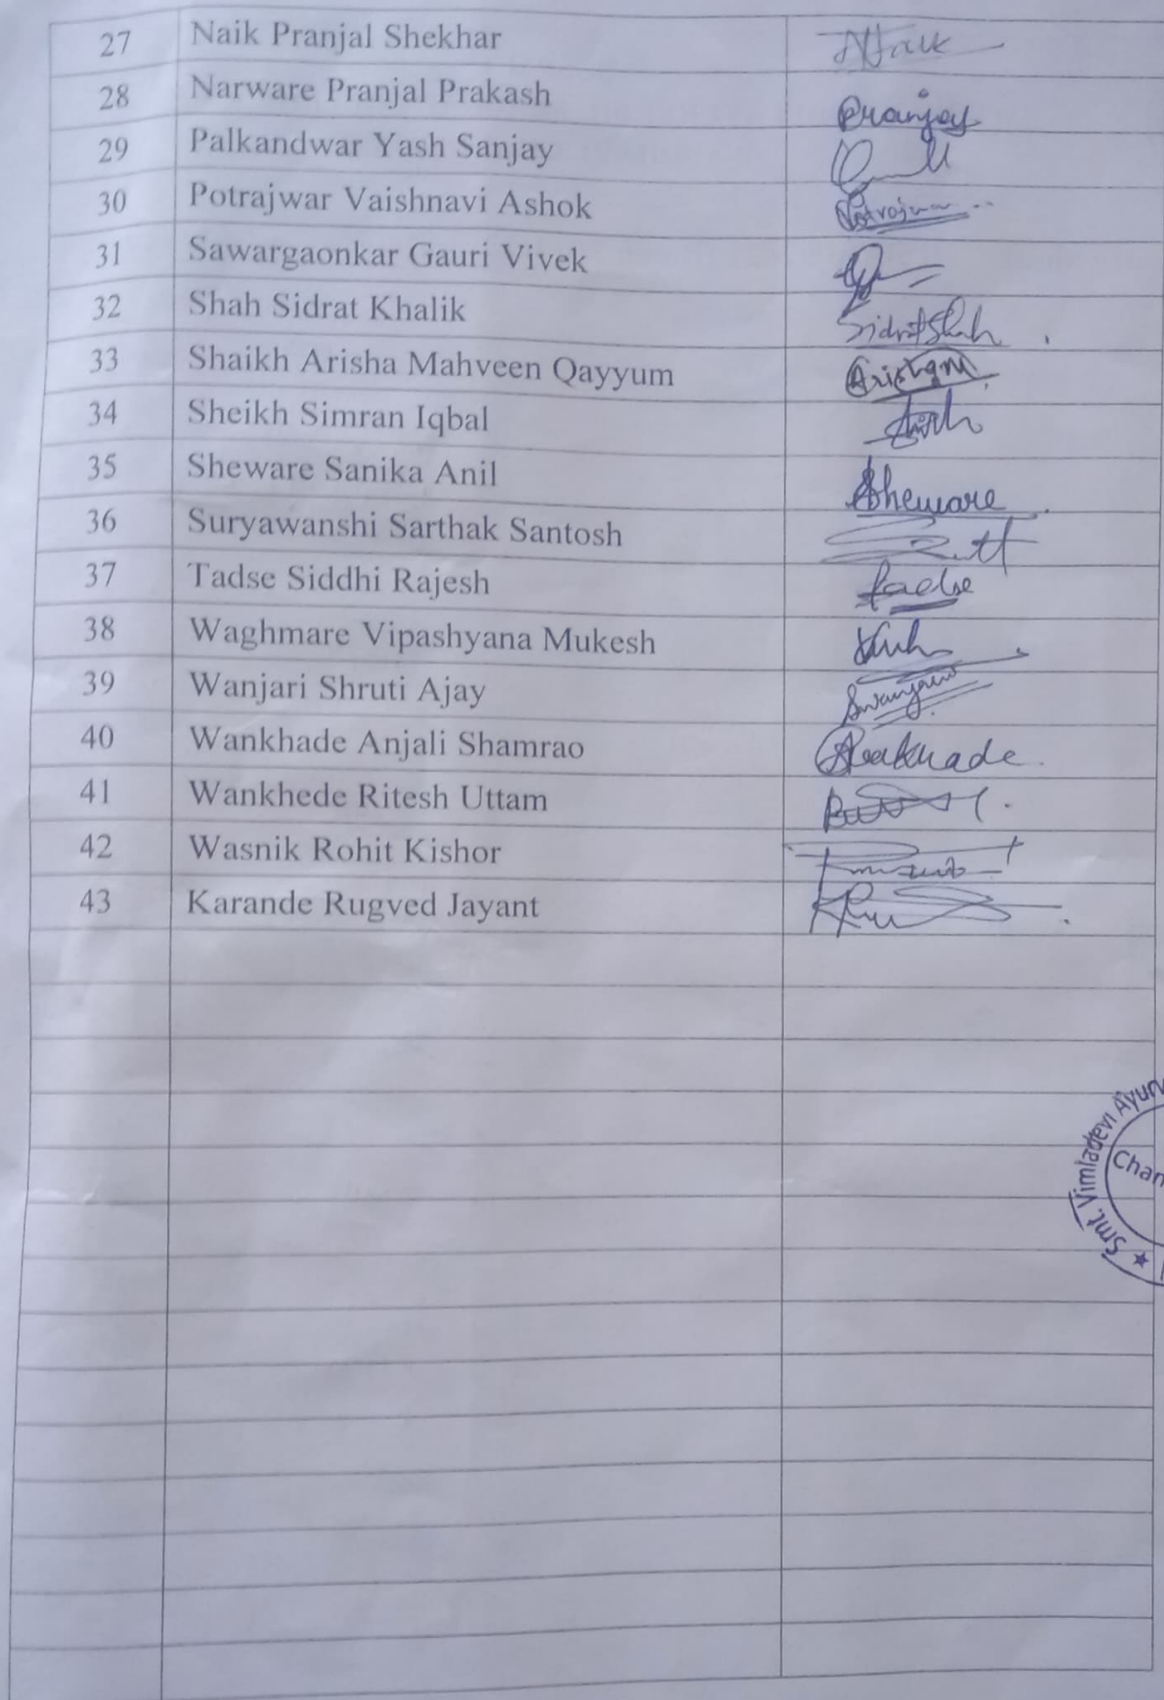 27 Naik Pranjal Shekhar Naik
28 Narware Pranjal Prakash
29 Palkandwar Yash Sanjay
30 Potrajwar Vaishnavi Ashok
31 Sawargaonkar Gauri Vivek
32 Shah Sidrat Khalik Sidrat Shah
33 Shaikh Arisha Mahveen Qayyum
34 Sheikh Simran Iqbal
35 Sheware Sanika Anil Sheware
36 Suryawanshi Sarthak Santosh
37 Tadse Siddhi Rajesh Tadse
38 Waghmare Vipashyana Mukesh
39 Wanjari Shruti Ajay
40 Wankhade Anjali Shamrao
41 Wankhede Ritesh Uttam
42 Wasnik Rohit Kishor
43 Karande Rugved Jayant
Smt. Vimladevi Ayur
Chan